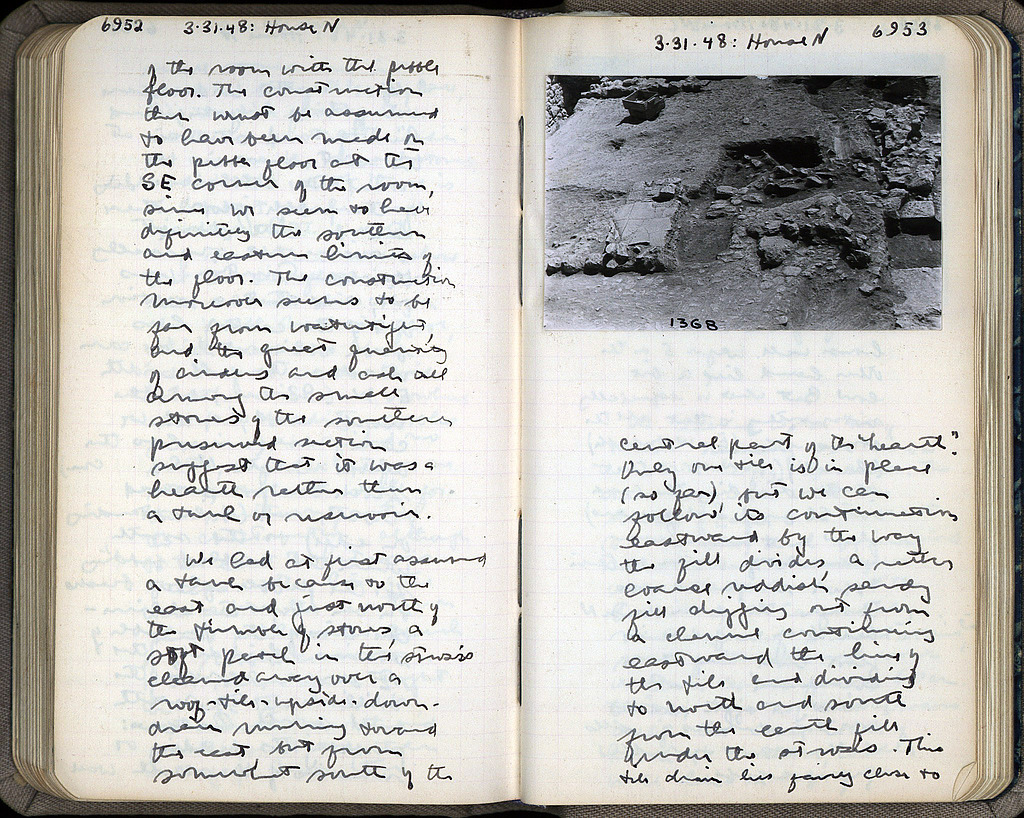 6952 3·31·48: House N
of the room with the pebble
floor. The construction
then must be assumed
to have been made on
the pebble floor at the
SE corner of the room,
since we seem to have
definitely the southern
and eastern limits of
the floor. The construction
moreover seems to be
far from watertight,
and the great quantity
of cinders and ash all
among the small
stones of the southern
preserved section
suggest that it was a
hearth rather than
a tank or reservoir.
We had at first assumed
a tank because to the
east and just north of
the tumble of stones a
soft patch in the stosis
cleaned away over a
roof-tile-upside-down-
drain running toward
the east but from
somewhat south of the
3·31·48: House N 6953
1368
central part of the "hearth".
Only one tile is in place
(so far) but we can
follow its continuation
eastward by the way
the fill divides a rather
coarse reddish sandy
fill digging out from
a channel continuing
eastward the line of
the tile and dividing
to north and south
from the earth fill
under the stosis. This
tile drain lies fairly close to